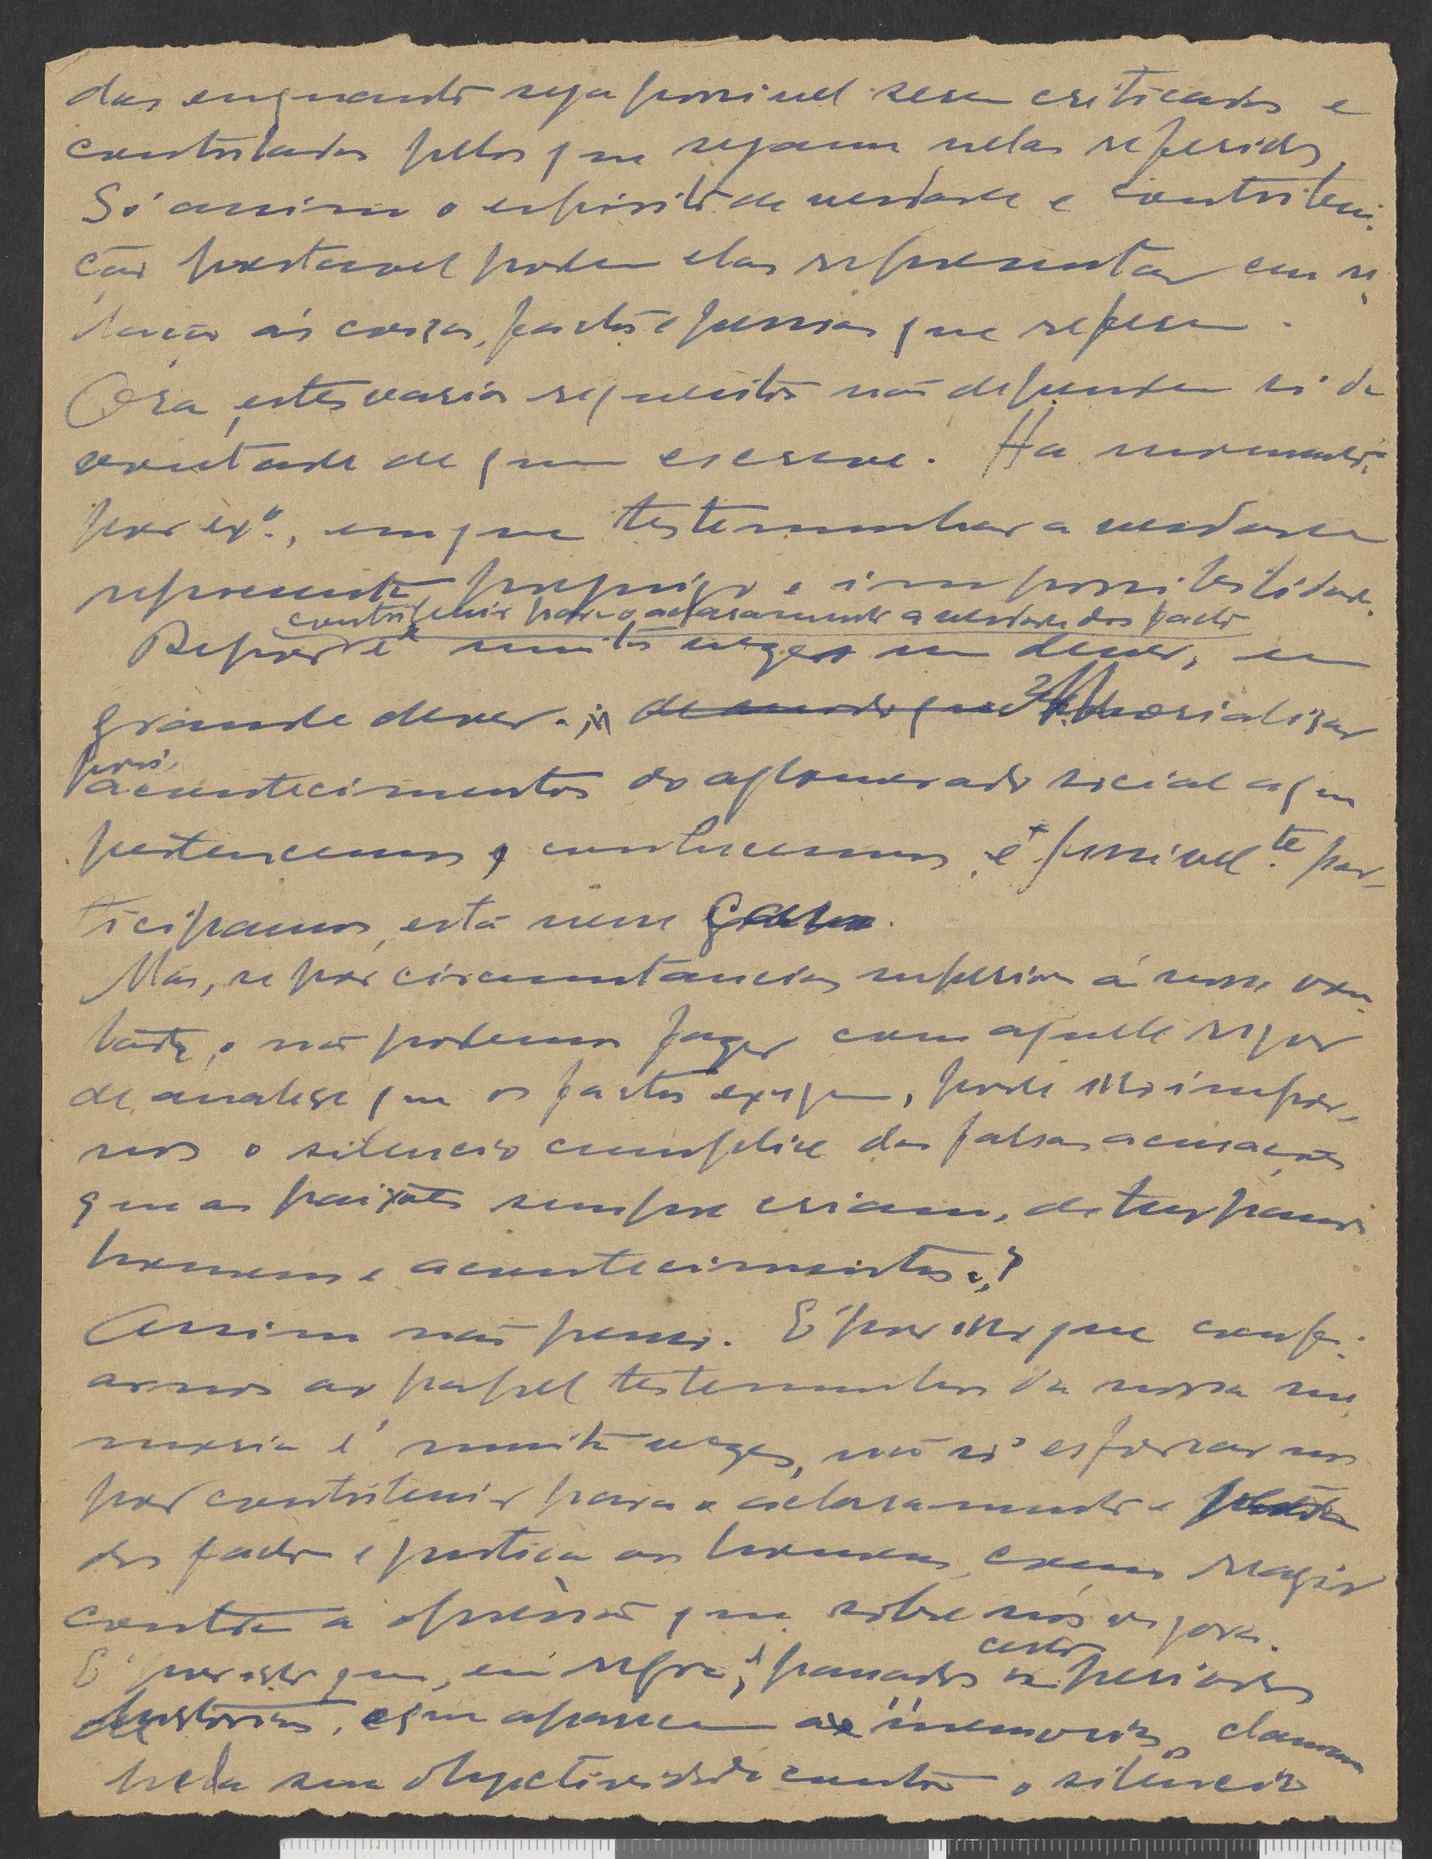 das enquanto seja possivel serem criticados e
controlados pelos que sejam nelas referidos.
Só assim o espirito de verdade e contribui-
ção prestavel podem elas representar em re-
lação ás coisas, factos e pessoas que referem.
Ora, estes varios requisitos não dependem só da
vontade de quem escreve. Ha momentos,
por exº., em que testemunhar a verdade
representa perigo e impossibilidade.
contribuir para o aclaramento a verdade dos factos
Depor é muitas vezes um dever, um
grande dever. memorializar
pois,
acontecimentos do aglomerado social a que
pertencemos, conhecemos, e possivel.te par-
ticipamos, está nesse caso.
Mas, se por circumstancias superiores á nossa von-
tade, o não podemos fazer com aquele rigor
de analise que os factos exigem, pode isso impor-
nos o silencio cumplice das falsas acusações
que as paixões sempre criam, deturpando
homens e acontecimentos?
Assim não penso. E' por isso que confi-
armos ao papel testemunhos da nossa me-
moria é muitas vezes, não só esforçar-nos
por contribuir para o aclaramento e
dos factos e justiça aos homens, como reagir
contra a opressão que sobre nós vigora.
certos
E' por isso que, em regra, passados periodos
historicos, é que aparecem as "memorias", clamam
pela sua objectividade contra o silencio